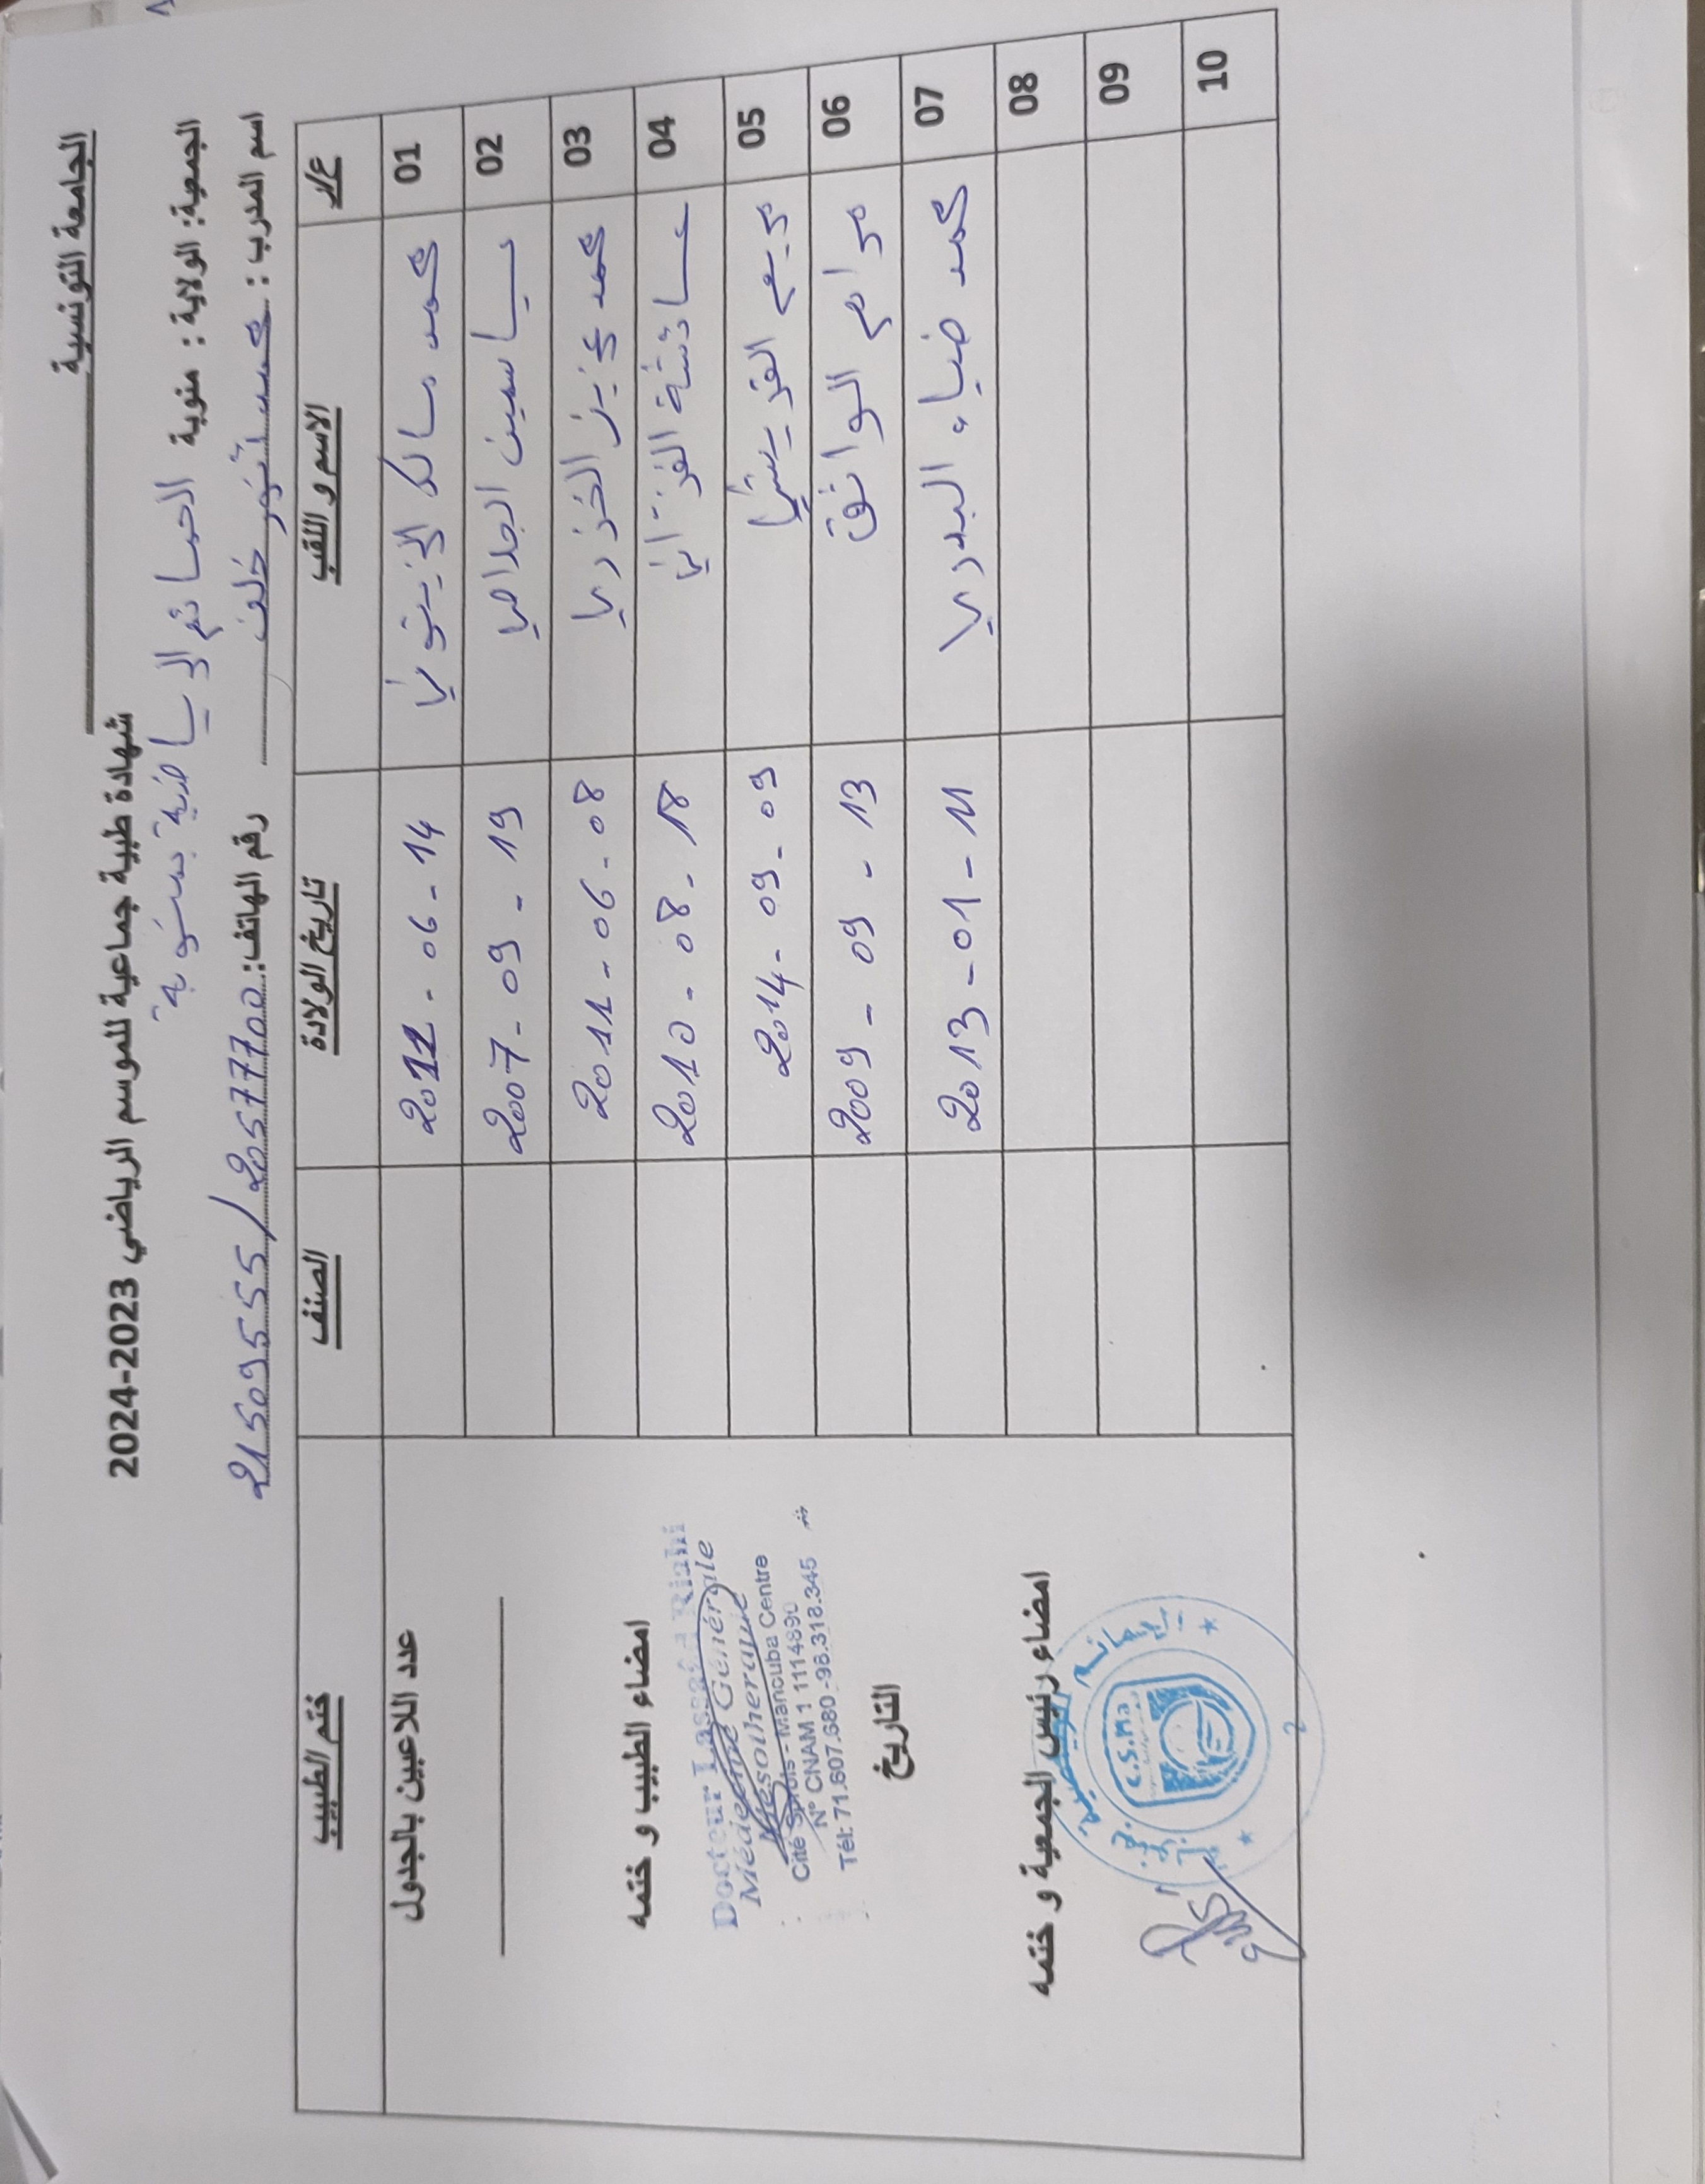 الجامعة التونسية
شهادة طبية جماعية للموسم الرياضي 2023-2024
الجمعية: الولاية : منوبة الحمائم الرياضية بمنوبة
اسم المدرب : محمد أنور خلف رقم الهاتف: 20577700 / 21509555
ع/ر الاسم و اللقب تاريخ الولادة الصنف ختم الطبيب
01 محمد مالك الزيتوني 2011 - 06 - 14
02 ياسمين الجلاصي 2007 - 09 - 19
03 محمد عزيز الخزري 2011 - 06 - 08
04 عائشة الغزواني 2010 - 08 - 18
05 مريم القريشي 2014 - 09 - 09
06 مرام الواثق 2009 - 09 - 13
07 محمد ضياء البدري 2013 - 01 - 11
08
09
10
عدد اللاعبين بالجدول
امضاء الطبيب و ختمه
Docteur Lassaad Riahi
Médecine Générale
Mésotherapie
Cité - Manouba Centre
N° CNAM 1 1114890
Tél: 71.607.680 - 98.318.345
التاريخ
امضاء رئيس الجمعية و ختمه
C.S.Ma